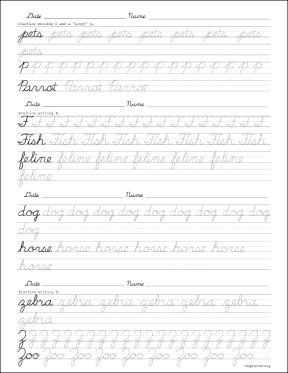 Date Name
Practice writing P and a "loopy" p.
pets pets pets pets pets pets pets pets
pets
P P P P P P P P P P P P P P P P P
Parrot Parrot Parrot
Date Name
Practice writing F.
F F F F F F F F F F F F F F F F
Fish Fish Fish Fish Fish Fish Fish Fish
feline feline feline feline feline feline
feline
Date Name
dog dog dog dog dog dog dog dog dog dog
dog
horse horse horse horse horse horse
horse
Date Name
Practice writing Z.
zebra zebra zebra zebra zebra zebra
zebra
Z Z Z Z Z Z Z Z Z Z Z Z Z Z Z Z
Zoo Zoo Zoo Zoo Zoo Zoo Zoo Zoo Zoo